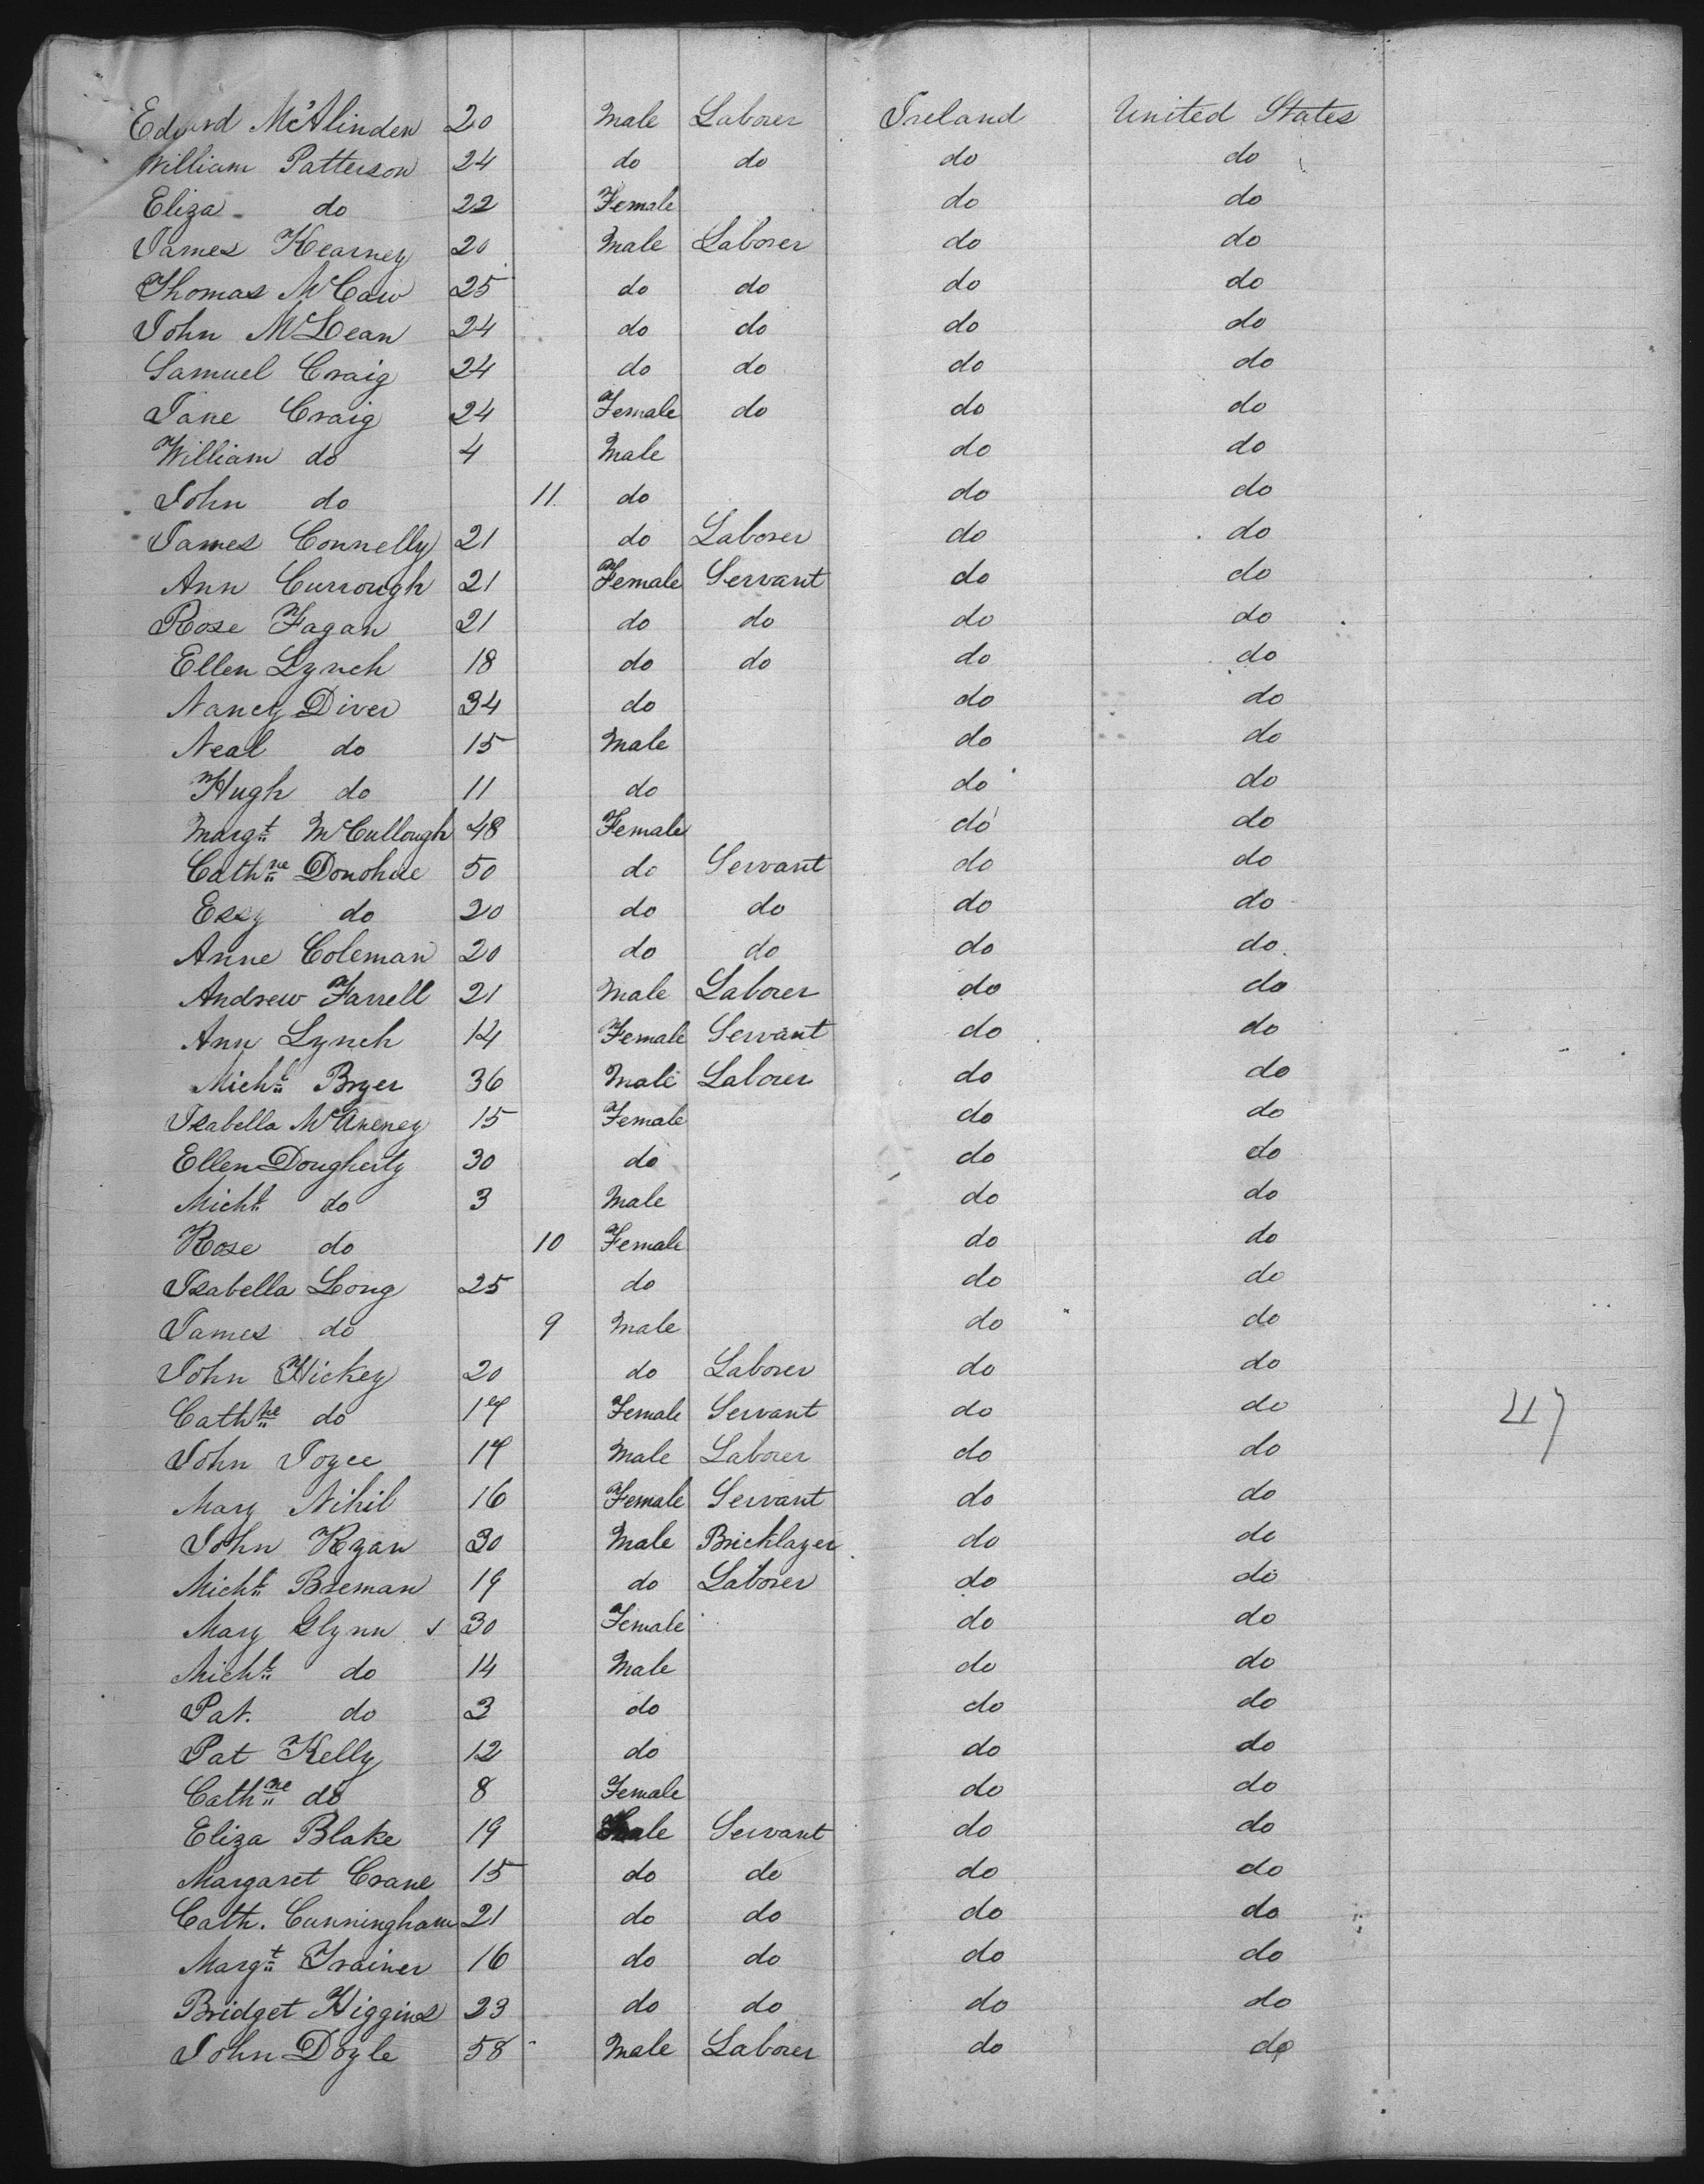 Edward McAlinden 20 Male Laborer Ireland United States
William Patterson 24 do do do do
Eliza do 22 Female do do
James Kearney 20 Male Laborer do do
Thomas McCaw 25 do do do do
John McLean 24 do do do do
Samuel Craig 24 do do do do
Jane Craig 24 Female do do do
William do 4 Male do do
John do 11 do do do
James Connelly 21 do Laborer do do
Ann Currough 21 Female Servant do do
Rose Fagan 21 do do do do
Ellen Lynch 18 do do do do
Nancy Diver 34 do do do
Neal do 15 Male do do
Hugh do 11 do do do
Margt McCullough 48 Female do do
Cathne Donohue 50 do Servant do do
Essy do 20 do do do do
Anne Coleman 20 do do do do
Andrew Farrell 21 Male Laborer do do
Ann Lynch 14 Female Servant do do
Michl Bryer 36 Male Laborer do do
Isabella McAneney 15 Female do do
Ellen Dougherty 30 do do do
Michl do 3 Male do do
Rose do 10 Female do do
Isabella Long 25 do do do
James do 9 Male do do
John Hickey 20 do Laborer do do
Cathne do 17 Female Servant do do 47
John Joyce 17 Male Laborer do do
Mary Nihil 16 Female Servant do do
John Ryan 30 Male Bricklayer do do
Michl Breman 19 do Laborer do do
Mary Glynn 30 Female do do
Michl do 14 Male do do
Pat. do 3 do do do
Pat Kelly 12 do do do
Cathne do 8 Female do do
Eliza Blake 19 Servant do do
Margaret Crane 15 do do do do
Cath. Cunningham 21 do do do do
Margt Trainer 16 do do do do
Bridget Higgins 23 do do do do
John Doyle 58 Male Laborer do do